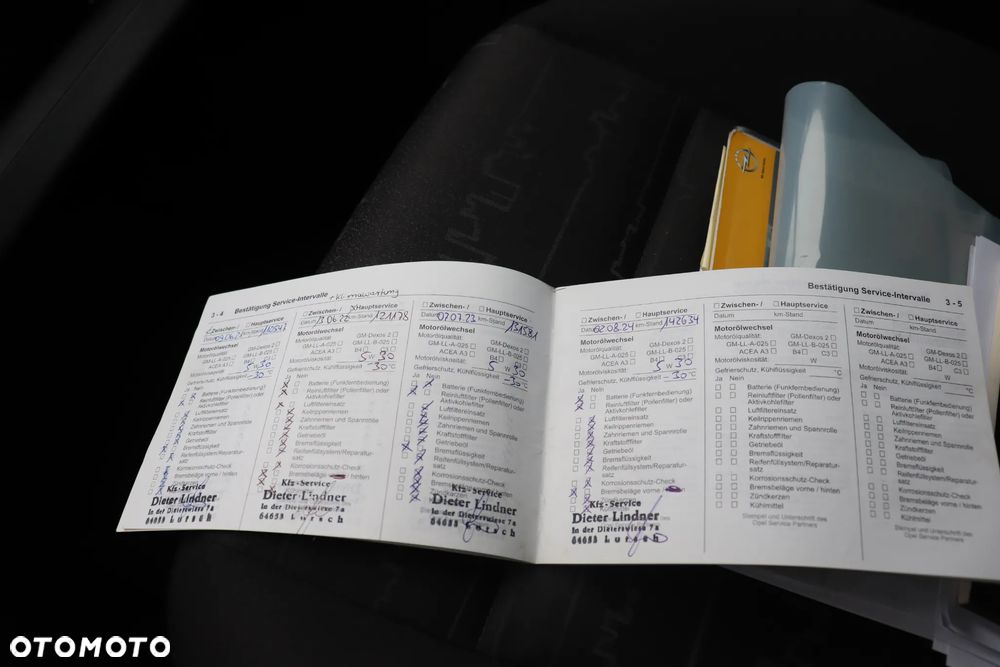 3 - 4 Bestätigung Service-Intervalle + Klimawartung
Zwischen- / Hauptservice
Datum km-Stand
Motorölwechsel
Motorölqualität: GM-Dexos 2
GM-LL-A-025 GM-LL-B-025
ACEA A3 B4 C3
Motorölviskosität: 5 W 30
Gefrierschutz, Kühlflüssigkeit -30 °C
Ja Nein
Batterie (Funkfernbedienung)
Reinluftfilter (Pollenfilter) oder
Aktivkohlefilter
Luftfiltereinsatz
Keilrippenriemen
Zahnriemen und Spannrolle
Kraftstofffilter
Getriebeöl
Bremsflüssigkeit
Reifenfüllsystem/Reparatur-
satz
Korrosionsschutz-Check
Bremsbeläge vorne / hinten
Kfz-Service
Dieter Lindner
In der Dieterswiese 7a
64653 Lorsch
Zwischen- / Hauptservice
Datum 13.06.22 km-Stand 121178
Motorölwechsel
Motorölqualität: GM-Dexos 2
GM-LL-A-025 GM-LL-B-025
ACEA A3 B4 C3
Motorölviskosität: 5 W 30
Gefrierschutz, Kühlflüssigkeit -30 °C
Ja Nein
Batterie (Funkfernbedienung)
Reinluftfilter (Pollenfilter) oder
Aktivkohlefilter
Luftfiltereinsatz
Keilrippenriemen
Zahnriemen und Spannrolle
Kraftstofffilter
Getriebeöl
Bremsflüssigkeit
Reifenfüllsystem/Reparatur-
satz
Korrosionsschutz-Check
Bremsbeläge hinten
Kfz-Service
Dieter Lindner
In der Dieterswiese 7a
64653 Lorsch
Zwischen- / Hauptservice
Datum 07.07.23 km-Stand 131581
Motorölwechsel
Motorölqualität: GM-Dexos 2
GM-LL-A-025 GM-LL-B-025
ACEA A3 B4 C3
Motorölviskosität: 5 W 30
Gefrierschutz, Kühlflüssigkeit -30 °C
Ja Nein
Batterie (Funkfernbedienung)
Reinluftfilter (Pollenfilter) oder
Aktivkohlefilter
Luftfiltereinsatz
Keilrippenriemen
Zahnriemen und Spannrolle
Kraftstofffilter
Getriebeöl
Bremsflüssigkeit
Reifenfüllsystem/Reparatur-
satz
Korrosionsschutz-Check
Kfz-Service
Dieter Lindner
In der Dieterswiese 7a
64653 Lorsch
Bestätigung Service-Intervalle 3 - 5
Zwischen- / Hauptservice
Datum 02.08.24 km-Stand 142634
Motorölwechsel
Motorölqualität: GM-Dexos 2
GM-LL-A-025 GM-LL-B-025
ACEA A3 B4 C3
Motorölviskosität: 5 W 30
Gefrierschutz, Kühlflüssigkeit -30 °C
Ja Nein
Batterie (Funkfernbedienung)
Reinluftfilter (Pollenfilter) oder
Aktivkohlefilter
Luftfiltereinsatz
Keilrippenriemen
Zahnriemen und Spannrolle
Kraftstofffilter
Getriebeöl
Bremsflüssigkeit
Reifenfüllsystem/Reparatur-
satz
Korrosionsschutz-Check
Bremsbeläge vorne /
Kfz-Service
Dieter Lindner
In der Dieterswiese 7a
64653 Lorsch
Zwischen- / Hauptservice
Datum km-Stand
Motorölwechsel
Motorölqualität: GM-Dexos 2
GM-LL-A-025 GM-LL-B-025
ACEA A3 B4 C3
Motorölviskosität: W
Gefrierschutz, Kühlflüssigkeit °C
Ja Nein
Batterie (Funkfernbedienung)
Reinluftfilter (Pollenfilter) oder
Aktivkohlefilter
Luftfiltereinsatz
Keilrippenriemen
Zahnriemen und Spannrolle
Kraftstofffilter
Getriebeöl
Bremsflüssigkeit
Reifenfüllsystem/Reparatur-
satz
Korrosionsschutz-Check
Bremsbeläge vorne / hinten
Zündkerzen
Kühlmittel
Stempel und Unterschrift des
Opel Service Partners
Zwischen- / Hauptservice
Datum km-Stand
Motorölwechsel
Motorölqualität: GM-Dexos 2
GM-LL-A-025 GM-LL-B-025
ACEA A3 B4 C3
Motorölviskosität: W
Gefrierschutz, Kühlflüssigkeit °C
Ja Nein
Batterie (Funkfernbedienung)
Reinluftfilter (Pollenfilter) oder
Aktivkohlefilter
Luftfiltereinsatz
Keilrippenriemen
Zahnriemen und Spannrolle
Kraftstofffilter
Getriebeöl
Bremsflüssigkeit
Reifenfüllsystem/Reparatur-
satz
Korrosionsschutz-Check
Bremsbeläge vorne / hinten
Zündkerzen
Kühlmittel
Stempel und Unterschrift des
Opel Service Partners
OTOMOTO